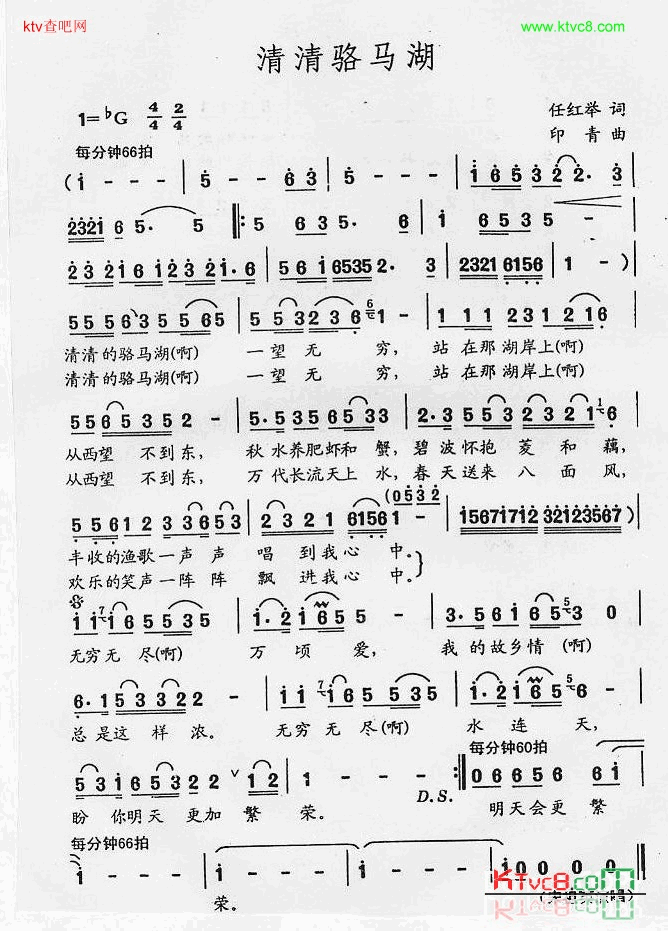 ktv查吧网
www.ktvc8.com
清清骆马湖
1=♭G 4/4 2/4
任红举 词
印 青 曲
每分钟66拍
(i - - - | 5 - - 6 3 | 5 - - - | i 6 5 3 2 2. 3
2321 6 5. 5 |: 5 - - 3 | 5. 6 | i 6 5 3 | 5 -
2 3 216 12 3 21. 6 | 56 i6535 2. 3 | 2321 6156 | 1 - )
5 5 5 6 3 5 5 6 5 | 5 5 3 2 3 6 1 - | 1 1 1 2 3 1 2 1 6
清清的骆马湖(啊) 一望无 穷, 站在那湖岸上(啊)
清清的骆马湖(啊) 一望无 穷, 站在那湖岸上(啊)
5 5 6 5 3 5 2 - | 5. 5 3 5 6 5 3 3 | 2. 3 5 3 2 3 2 1 6
从西望 不到东, 秋水养肥虾和 蟹, 碧波怀抱 菱 和 藕,
从西望 不到东, 万代长流天上 水, 春天送来 八 面 风,
(0 5 3 2
5 5 6 1 2 3 3 6 5 3 | 2 3 2 1 6156 1 - | 1567i7i2 32i23567)
丰收的渔歌一声 声 唱 到我心 中。
欢乐的笑声一阵 阵 飘 进我心 中。
i i 6 5 6 5 3 5 | i. 2 i 6 5 5 | 3. 5 6 i 6 5 3 0
无穷无 尽(啊) 万 顷 爱, 我 的故乡情(啊)
6. 1 5 3 3 2 2 - | i i 6 5 6 5 3 5 | i. 2 i 6 5 5
总是这 样 浓。 无穷无 尽(啊) 水 连 天,
每分钟60拍
5 3 i 6 5 3 2 2 ∨ 1 2 | i - - - :| 0 6 6 5 6 6 i
盼 你明天 更加 繁 荣。 D.S. 明天会更 繁
每分钟66拍
i - - - | i - - - | i - - - | i 0 0 0 0
荣。
KTvc8.com